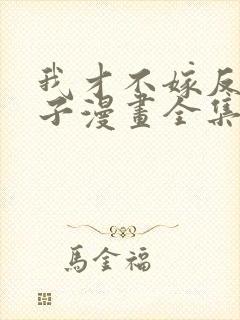 我才不嫁反
子漫畫全集
馬金福